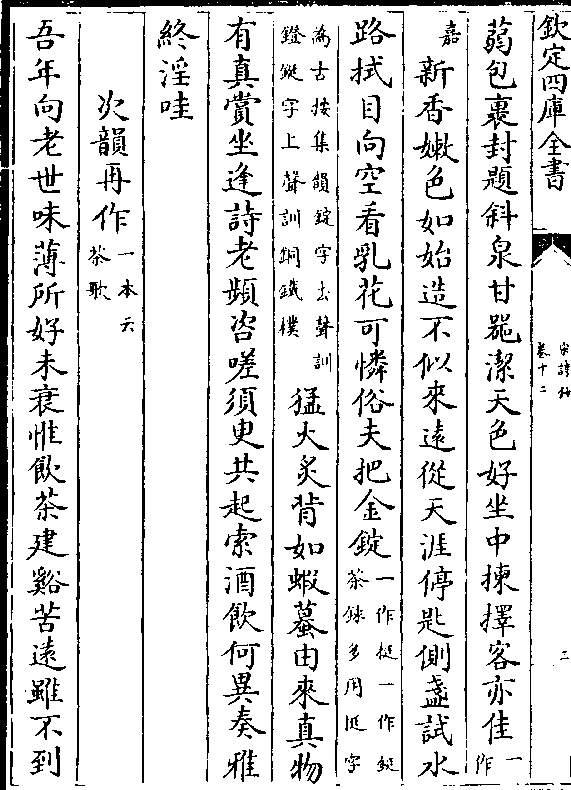 欽定四庫全書
宋詩鈔
卷十二
三
蒻包裹封題斜泉甘器潔天色好坐中揀擇客亦佳一作
嘉新香嫩色如始造不似來遠從天涯停匙側盞試水
路拭目向空看乳花可憐俗夫把金錠一作挺一作鋌茶錄多用挺字
為古按集韻錠字去聲訓鐙鋌字上聲訓銅鐵樸猛火炙背如蝦蟇由來真物
有真賞坐逢詩老頻咨嗟須臾共起索酒飲何異奏雅
終淫哇
次韻再作一本云茶歌
吾年向老世味薄所好未衰惟飲茶建谿苦遠雖不到